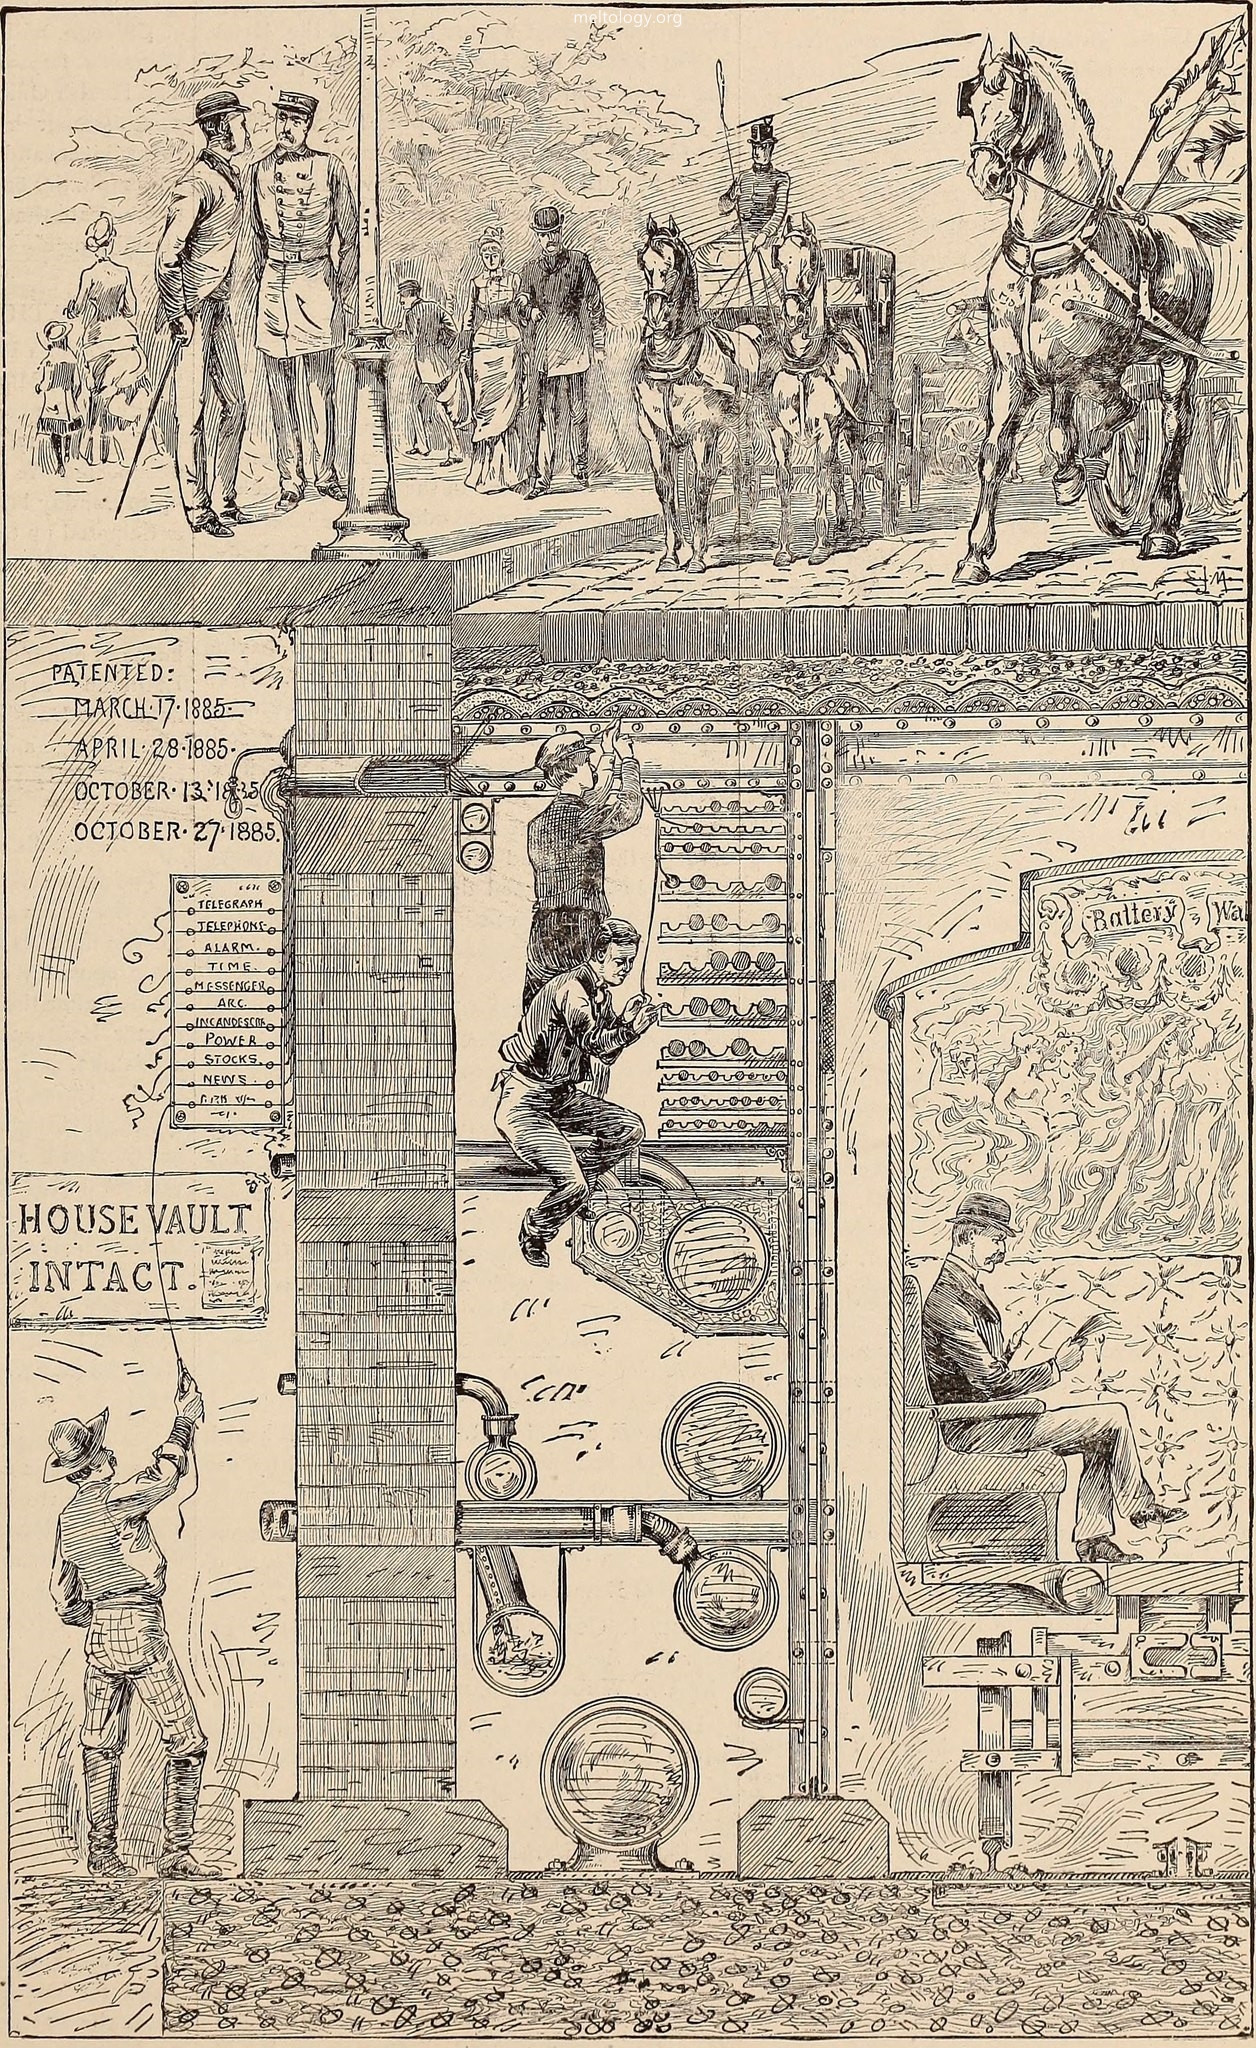 meltology.org
PATENTED:
MARCH·17·1885·
APRIL·28·1885·
OCTOBER·13·1885
OCTOBER·27·1885.
TELEGRAPH
TELEPHONE
ALARM.
TIME.
MESSENGER
ARC.
INCANDESCEN
POWER
STOCKS.
NEWS.
HOUSE VAULT
INTACT.
Battery
Wal